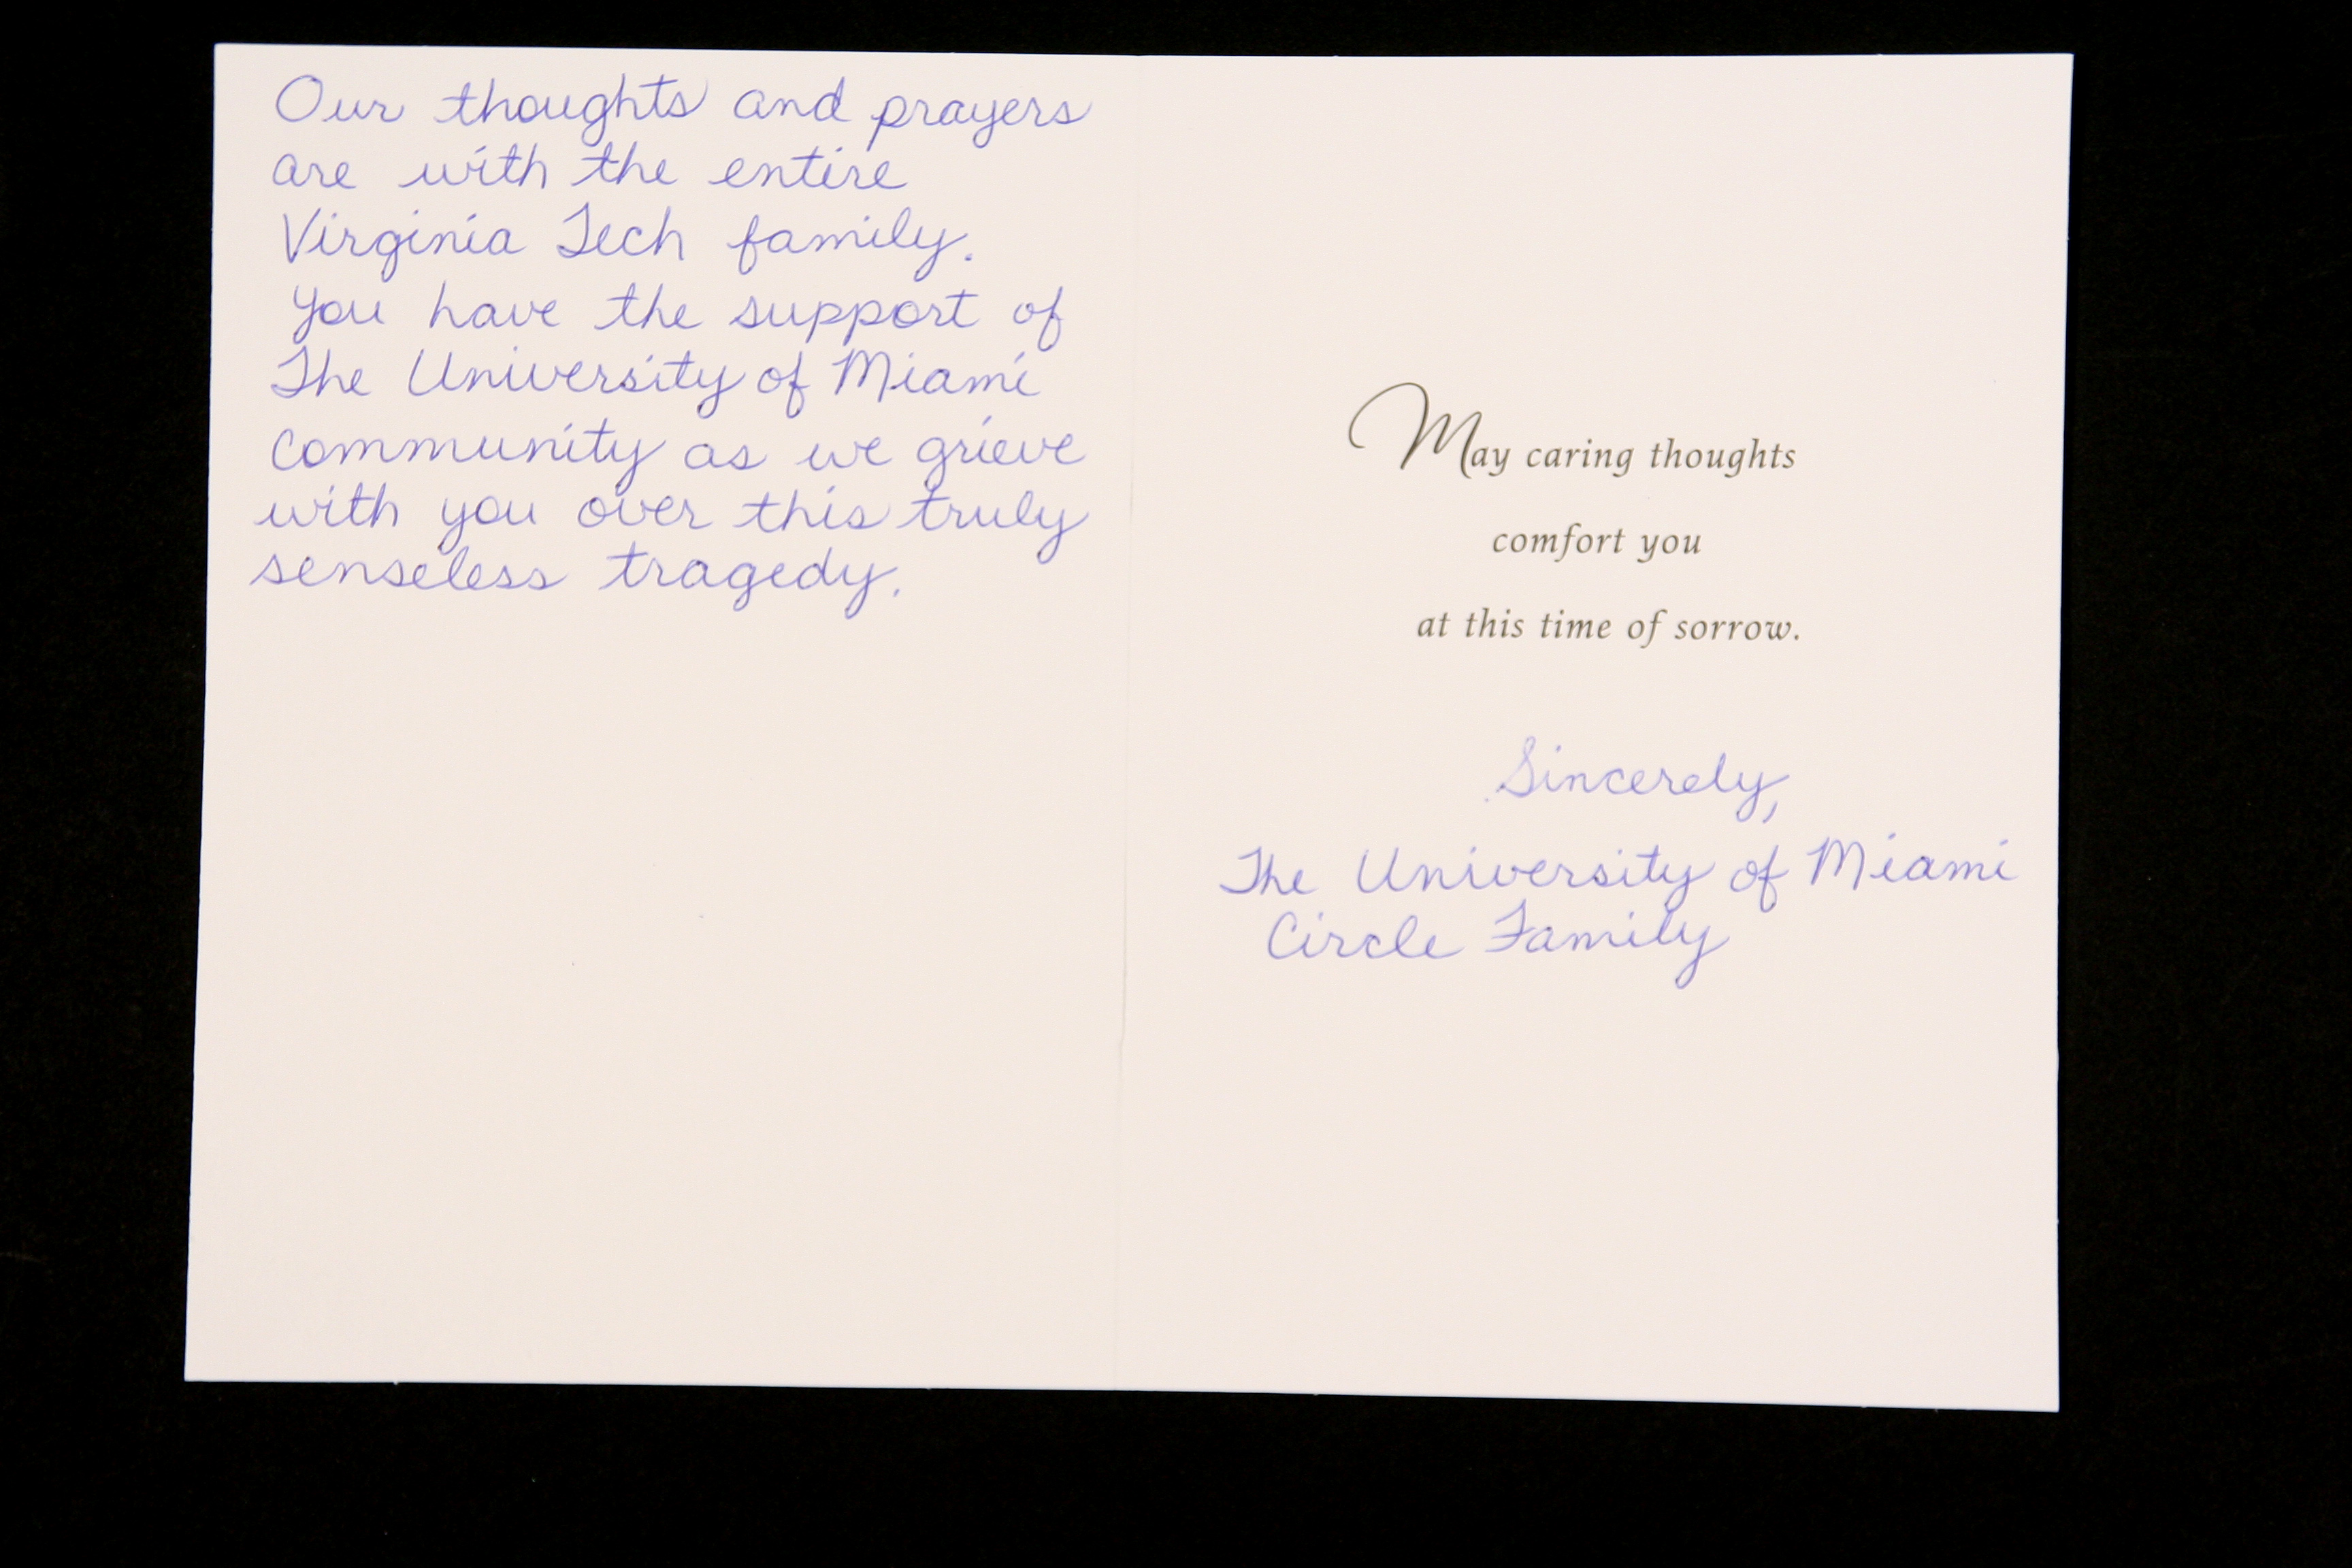 Our thoughts and prayers
are with the entire
Virginia Tech family.
You have the support of
The University of Miami
community as we grieve
with you over this truly
senseless tragedy.
May caring thoughts
comfort you
at this time of sorrow.
Sincerely,
The University of Miami
Circle Family